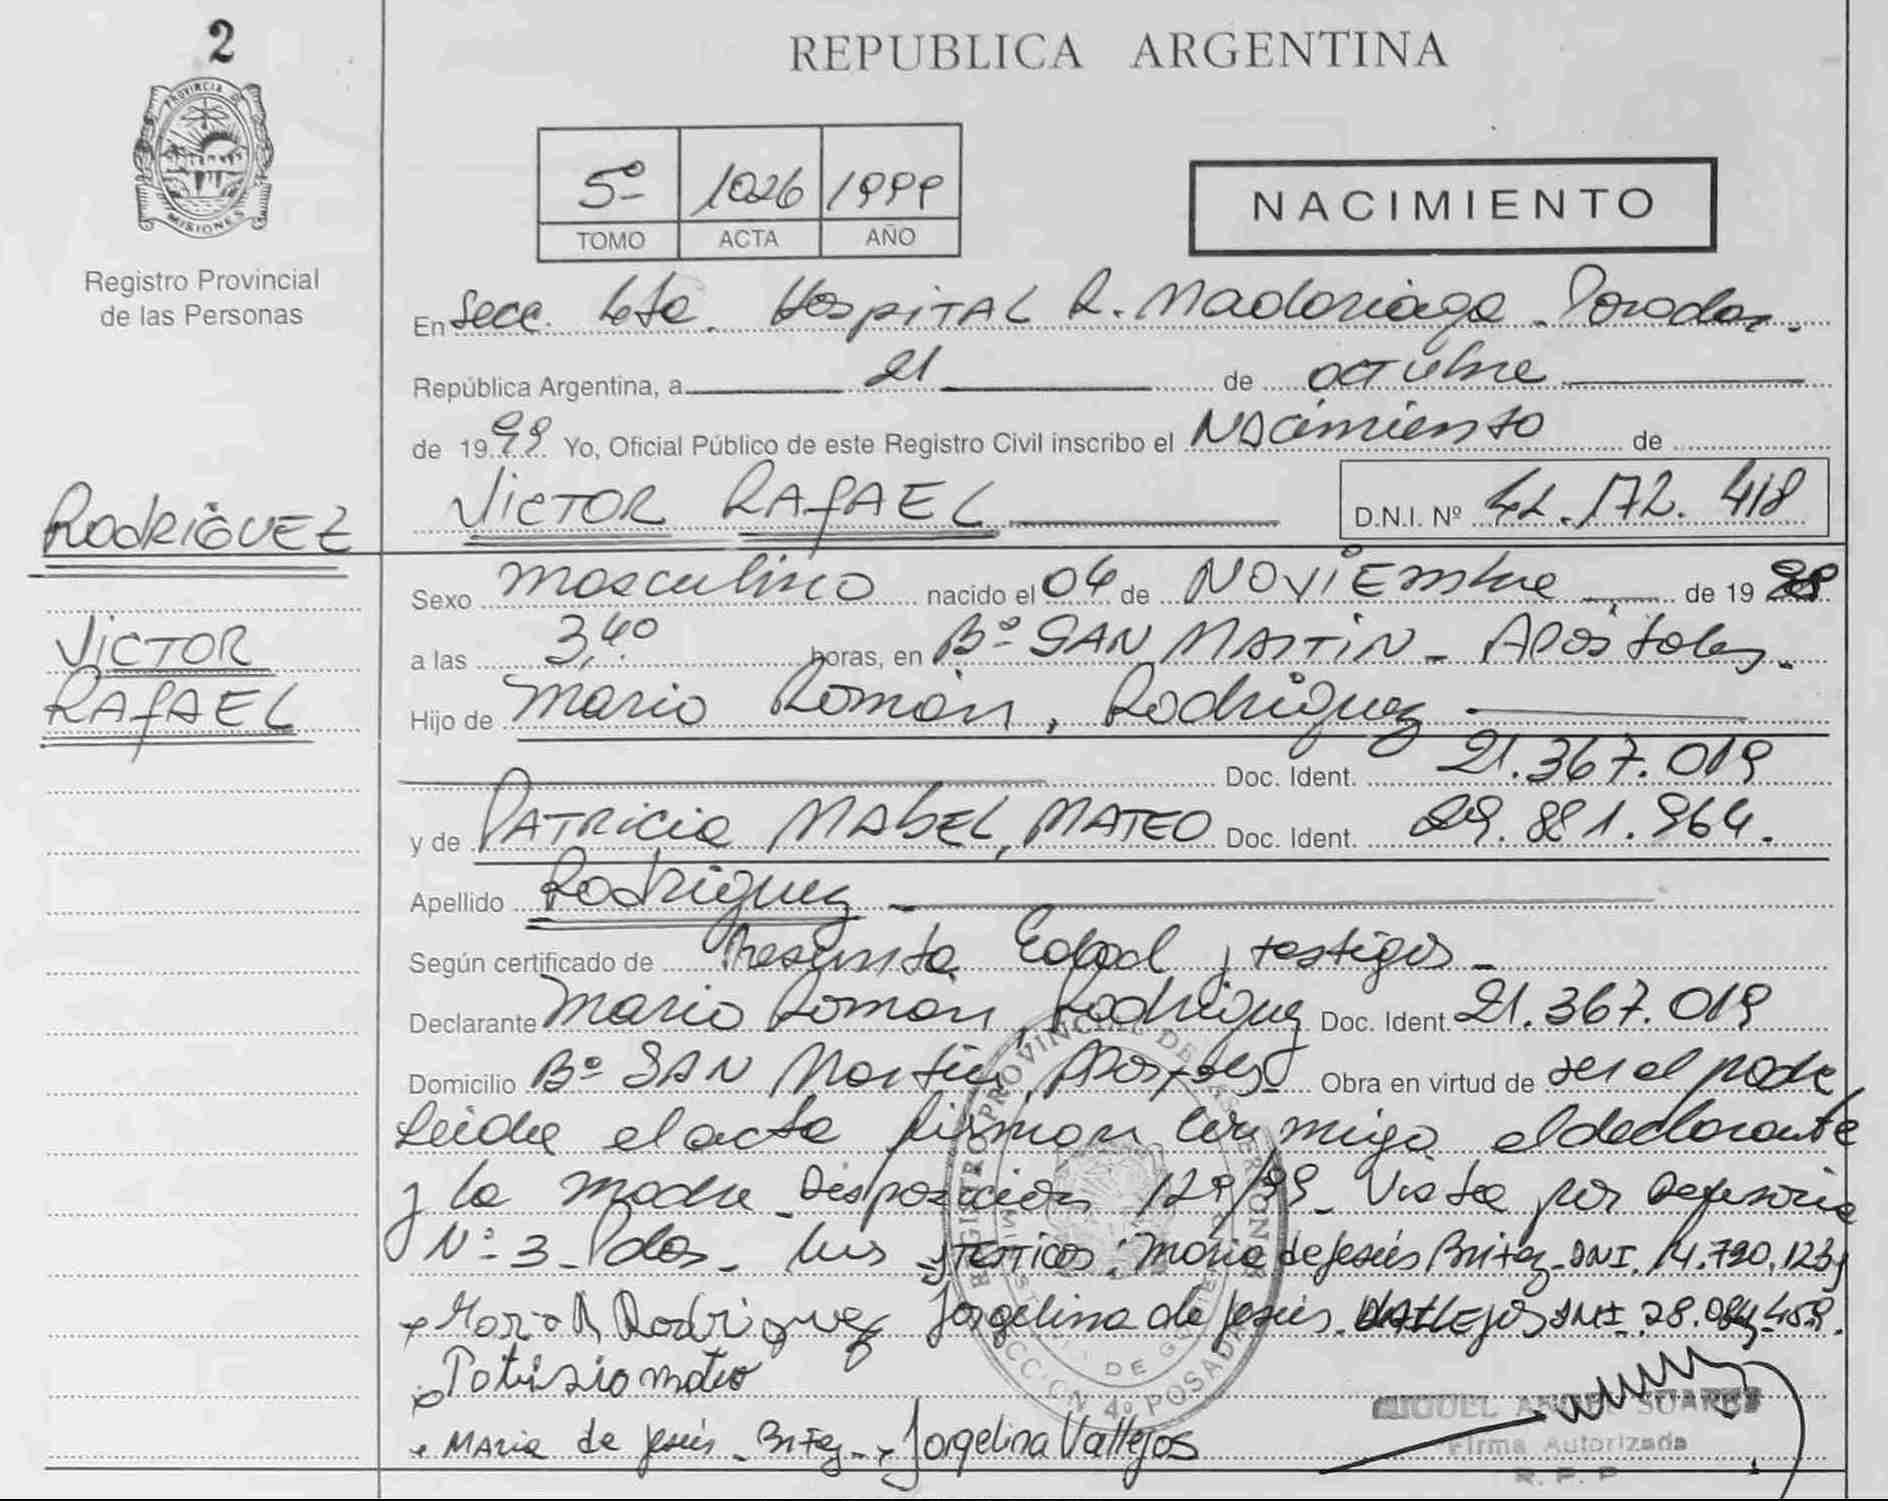 2
REPUBLICA ARGENTINA
PROVINCIA DE
MISIONES
Registro Provincial
de las Personas
5º 1026 1999
TOMO ACTA AÑO
NACIMIENTO
En Secc. 4ta. Hospital R. Madariaga - Posadas.
República Argentina, a 21 de octubre
de 1999 Yo, Oficial Público de este Registro Civil inscribo el Nacimiento de
VICTOR RAFAEL D.N.I. Nº 42.172.418
RODRIGUEZ
Sexo masculino nacido el 04 de NOVIEmbre de 19 98
VICTOR
RAFAEL
a las 3,40 horas, en Bº SAN MARTIN - Apóstoles.
Hijo de Mario Román, Rodriguez
Doc. Ident. 21.367.019
y de PATRICIA MABEL, MATEO Doc. Ident. 29.881.964.
Apellido Rodriguez
Según certificado de Presunta Edad y testigos -
Declarante Mario Román, Rodriguez Doc. Ident. 21.367.019
Domicilio Bº SAN Martin, Apostoles Obra en virtud de ser el padre
Leída el acta firman conmigo el declarante
y la madre - Disposición 129/99 - Vista por Defensoria
Nº 3 - Pdas - los testigos: Maria de Jesús Britez - DNI. 14.790.123 y
Mario R Rodriguez Jorgelina de Jesús VALLEJOS DNI. 28.084.459.
Patrisia mateo
Maria de Jesús - Britez - Jorgelina Vallejos
REGISTRO PROVINCIAL DE LAS PERSONAS
SECC. 4º POSADAS
MIGUEL ANGEL SUAREZ
Firma Autorizada
R. P. P.